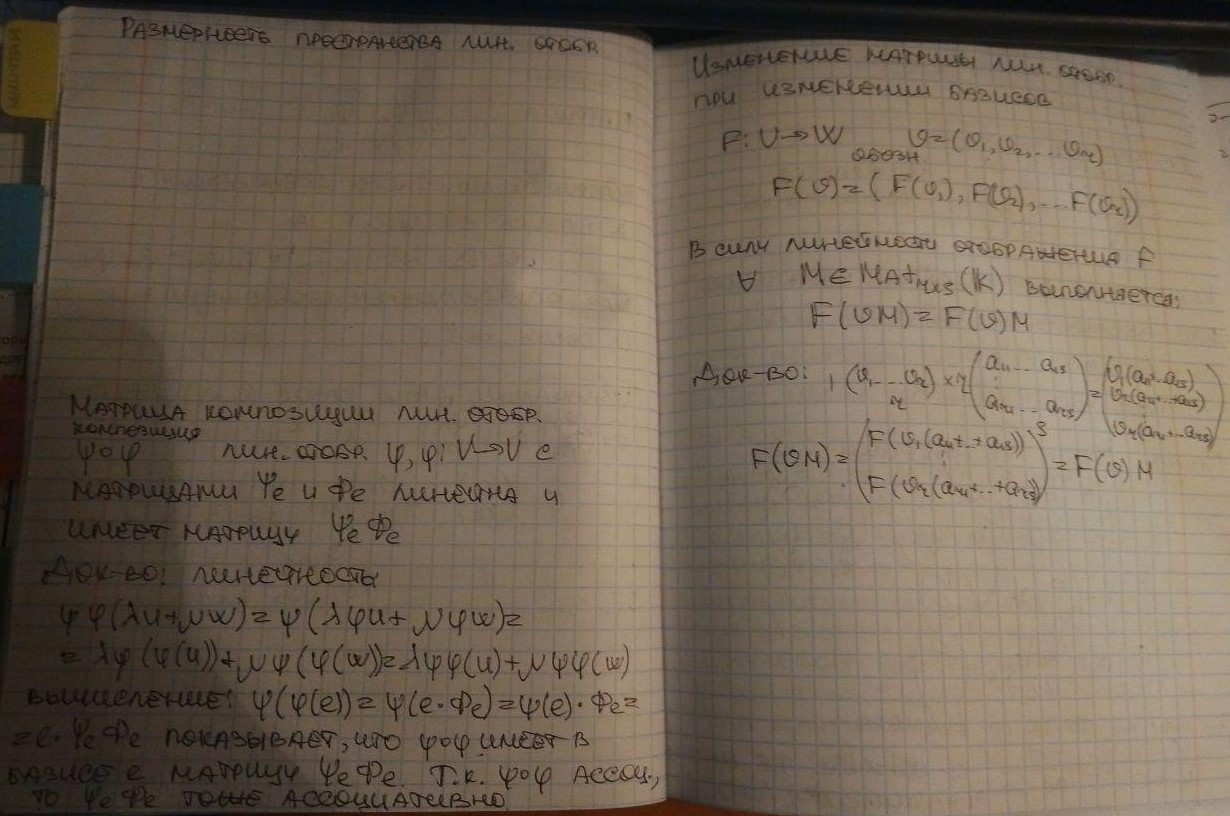 Размерность пространства лин. отобр.
Матрица композиции лин. отобр.
композиция
ψ∘φ лин. отобр. ψ, φ: V→V с
матрицами Ψe и Фe линейна и
имеет матрицу Ψe Фe
Док-во: линейность:
ψφ(λu+μw)=ψ(λφu+μφw)=
=λψ(φ(u))+μψ(φ(w))=λψφ(u)+μψφ(w)
вычисление: ψ(φ(e))=ψ(e·Фe)=ψ(e)·Фe=
=e·Ψe Фe показывает, что ψ∘φ имеет в
базисе e матрицу Ψe Фe. Т.к. ψ∘φ ассоц.,
то Ψe Фe тоже ассоциативно
Изменение матрицы лин. отобр.
при изменении базисов
F: U→W v=(v₁, v₂, ... vr)
обозн.
F(v)=(F(v₁), F(v₂), ... F(vr))
В силу линейности отображения F
∀ M∈Mat r×s (K) выполняется:
F(vM)=F(v)M
Док-во: ₁(v₁ ... vr) × r (a₁₁ ... a₁s
ar₁ ... ars) = (v₁(a₁₁+..a₁s)
vr(ar₁+...ars))
F(vM)=(F(v₁(a₁₁+..+a₁s))
F(vr(ar₁+..+ars))) = F(v)M